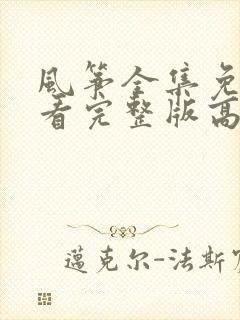 風筝全集免
看完整版高
邁克尔-法斯宾